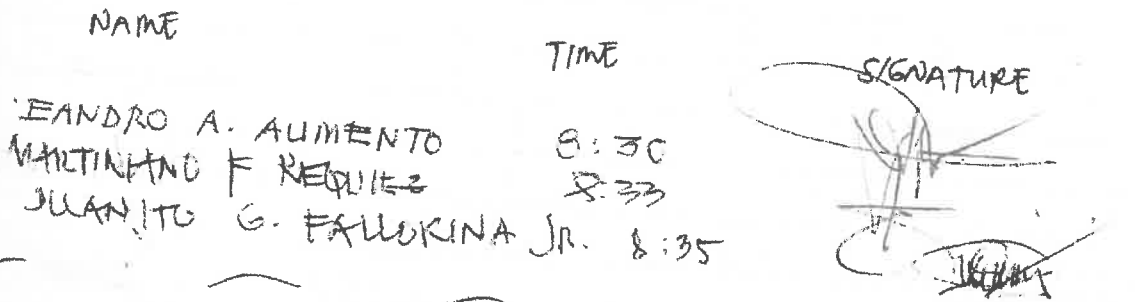 NAME TIME SIGNATURE
EANDRO A. AUMENTO 8:30
MARTINIANO F REQUIEZ 8:33
JUANITO G. FALLORINA JR. 8:35